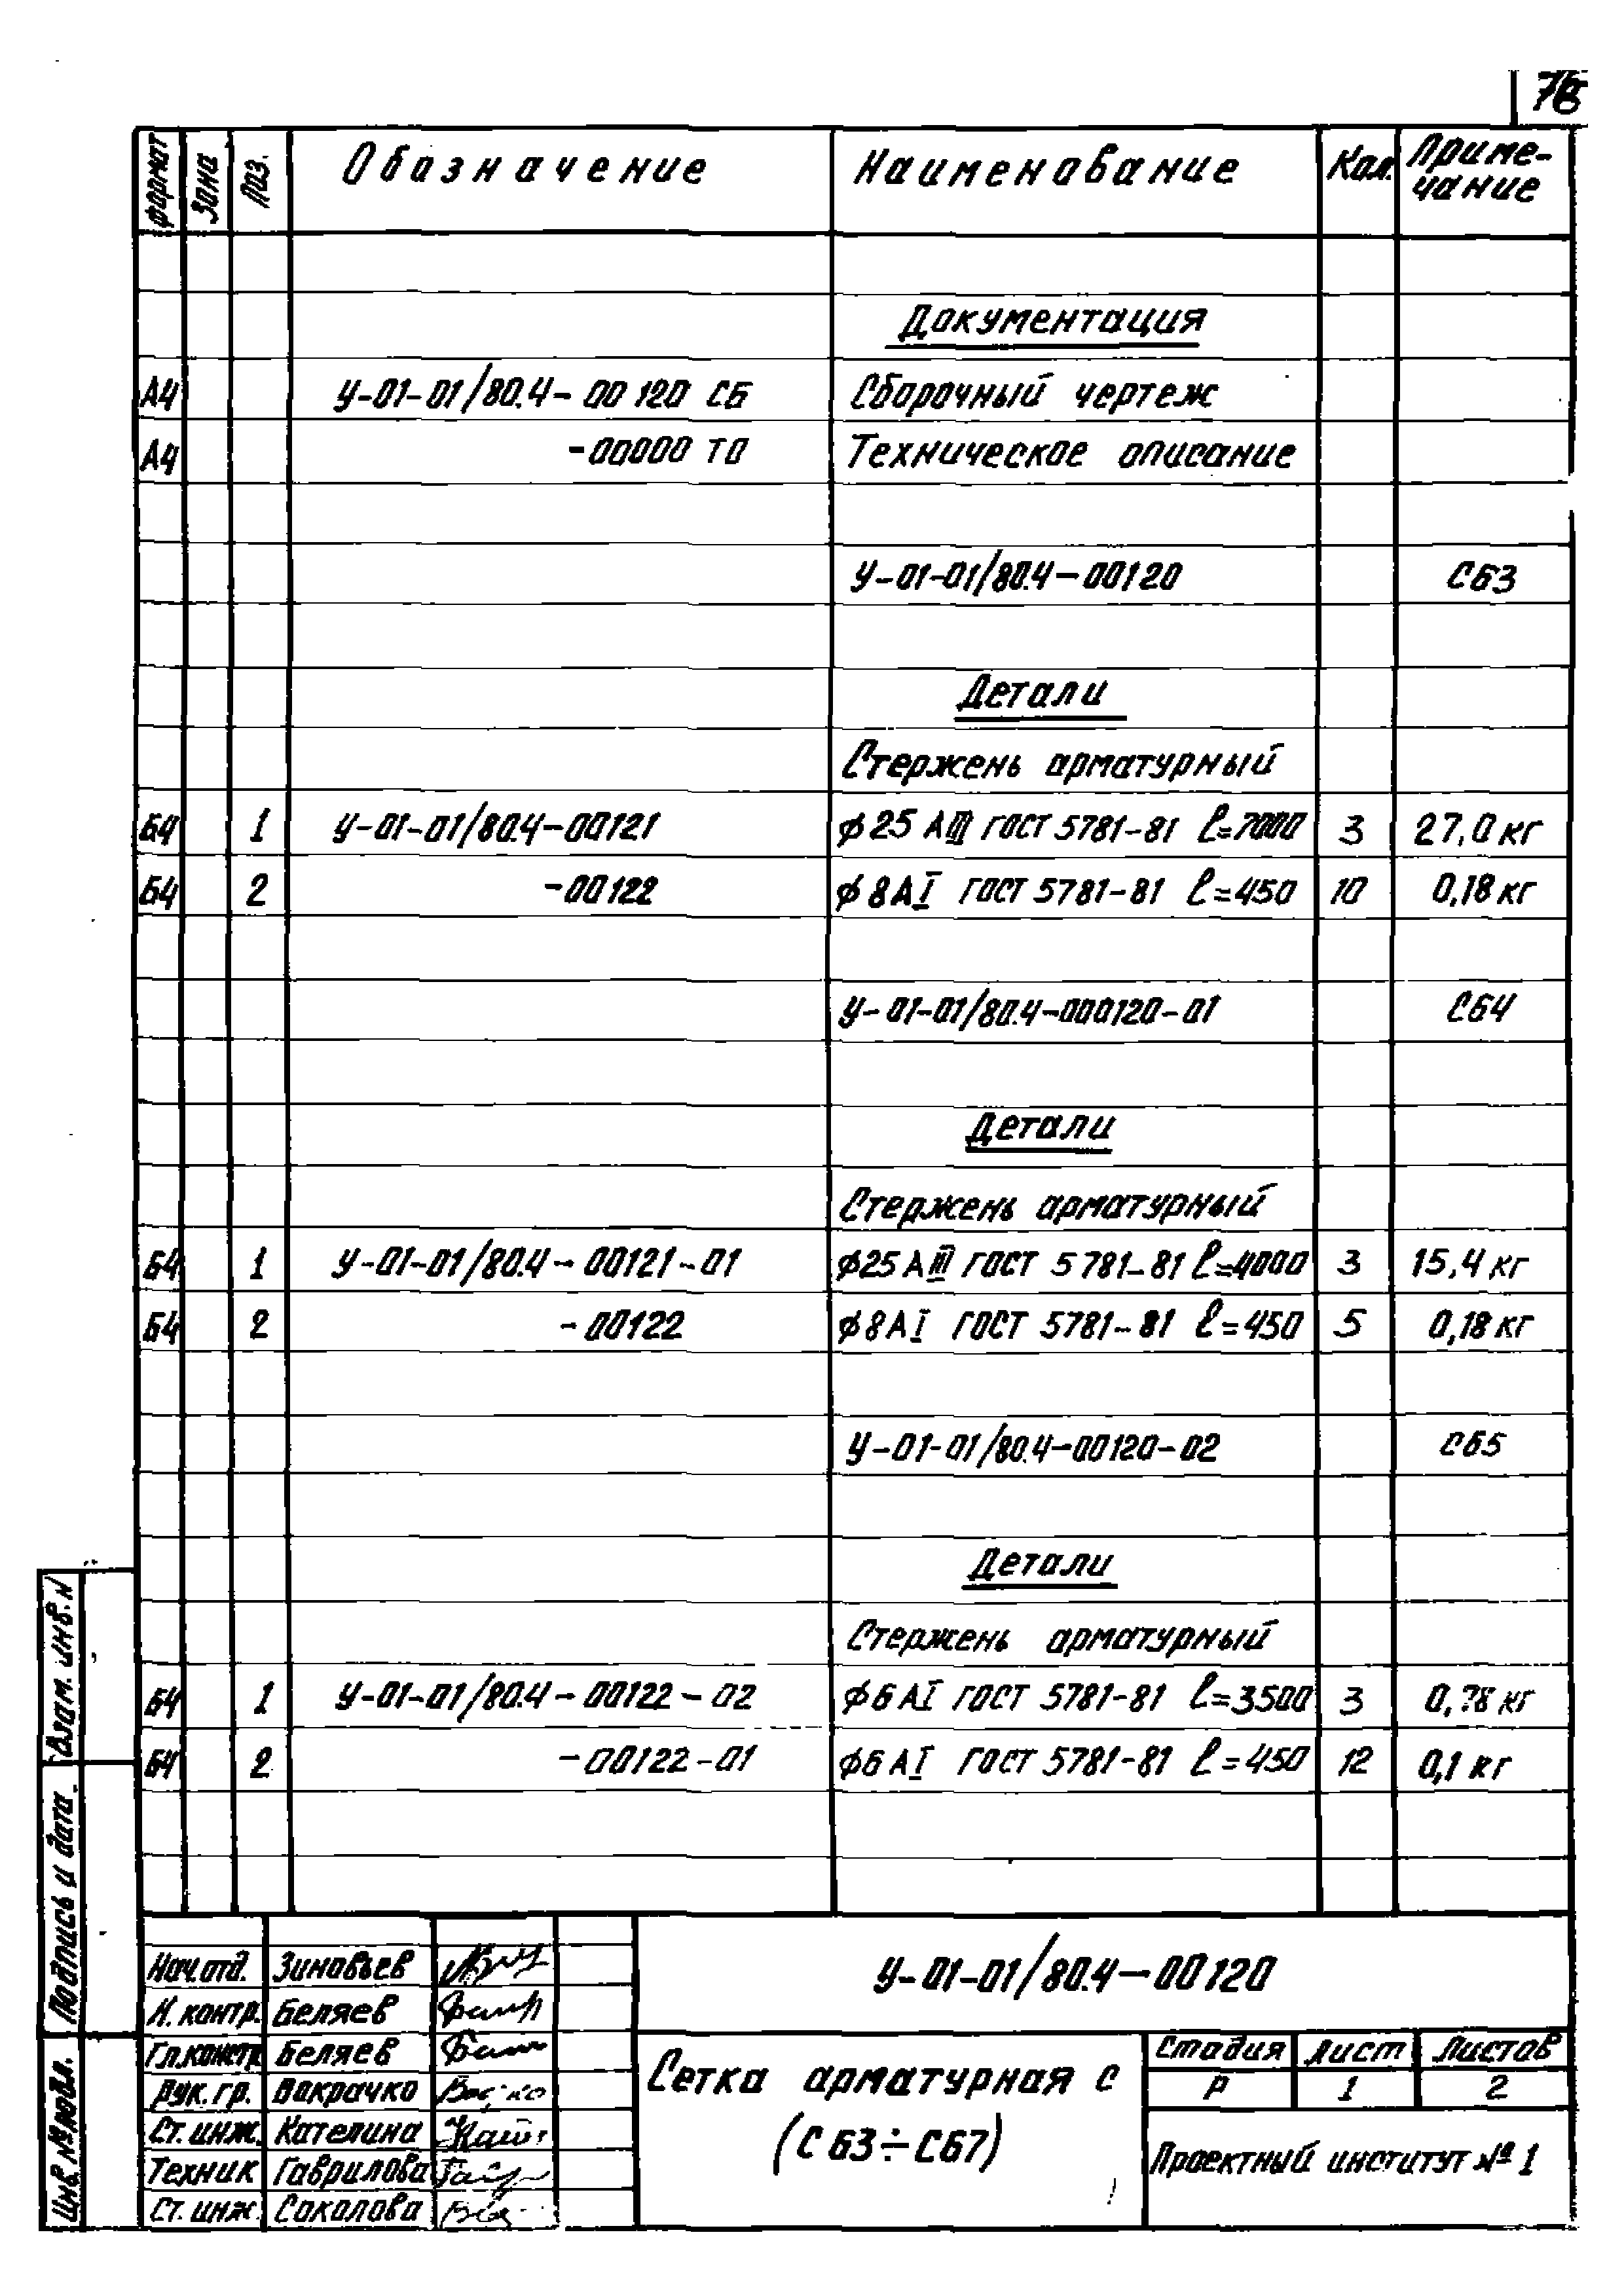 76
Формат Зона Поз. Обозначение Наименование Кол. Приме-
чание
Документация
А4 У-01-01/80.4-00120 СБ Сборочный чертеж
А4 -00000 ТО Техническое описание
У-01-01/80.4-00120 С63
Детали
Стержень арматурный
Б4 1 У-01-01/80.4-00121 ϕ25 АIII ГОСТ 5781-81 ℓ=7000 3 27,0 кг
Б4 2 -00122 ϕ8АI ГОСТ 5781-81 ℓ=450 10 0,18 кг
У-01-01/80.4-000120-01 С64
Детали
Стержень арматурный
Б4 1 У-01-01/80.4-00121-01 ϕ25 АIII ГОСТ 5781-81 ℓ=4000 3 15,4 кг
Б4 2 -00122 ϕ8АI ГОСТ 5781-81 ℓ=450 5 0,18 кг
У-01-01/80.4-00120-02 С65
Детали
Стержень арматурный
Б4 1 У-01-01/80.4-00122-02 ϕ6 АI ГОСТ 5781-81 ℓ=3500 3 0,78 кг
Б4 2 -00122-01 ϕ6 АI ГОСТ 5781-81 ℓ=450 12 0,1 кг
Взам. инв. №
Подпись и дата
Инв. № подл.
Нач. отд. Зиновьев
Н. контр. Беляев
Гл. констр. Беляев
Рук. гр. Вакрачко
Ст. инж. Кателина
Техник Гаврилова
Ст. инж. Соколова
У-01-01/80.4-00120
Сетка арматурная С
(С63÷С67)
Стадия Лист Листов
Р 1 2
Проектный институт № 1